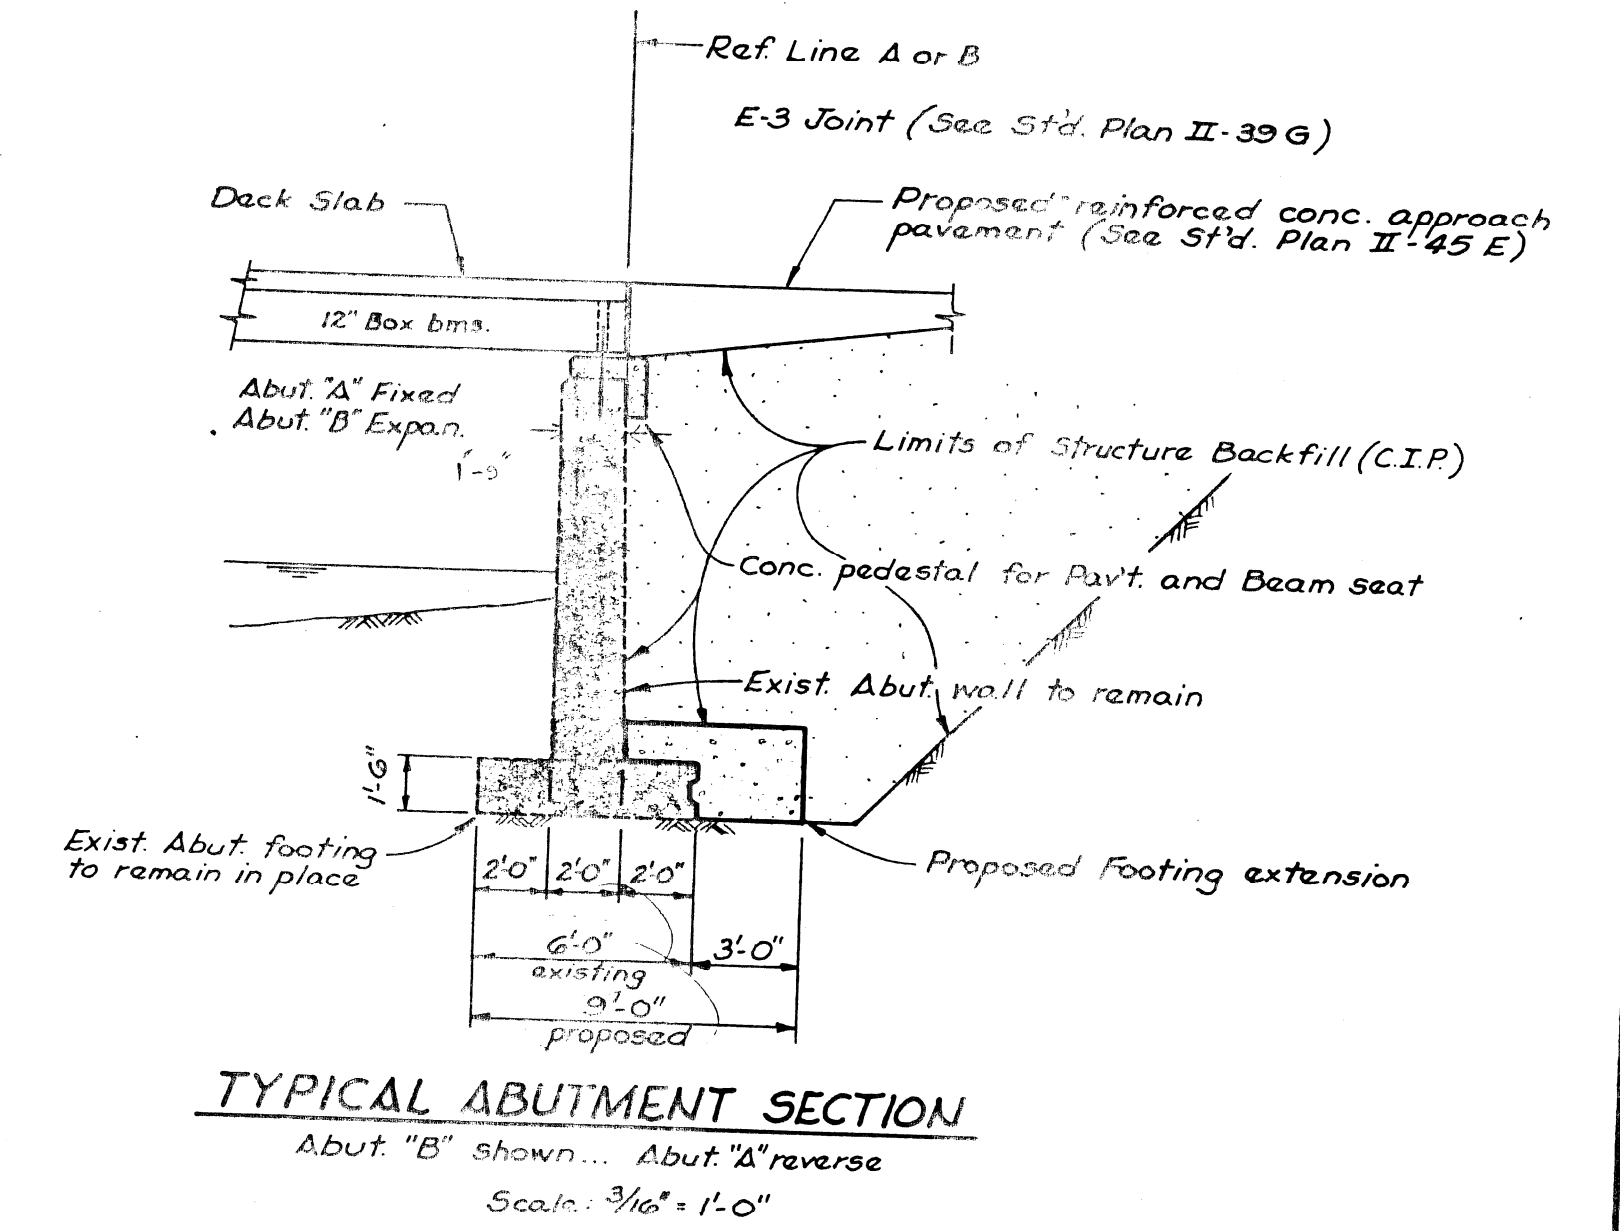 Ref. Line A or B
E-3 Joint (See St'd. Plan II-39 G)
Deck Slab
Proposed reinforced conc. approach
pavement (See St'd. Plan II-45 E)
12" Box bms.
Abut. "A" Fixed
Abut. "B" Expan.
1'-9"
Limits of Structure Backfill (C.I.P.)
Conc. pedestal for Pav't. and Beam seat
Exist. Abut. wall to remain
1'-6"
Exist. Abut. footing
to remain in place
2'-0" 2'-0" 2'-0"
Proposed Footing extension
6'-0"
existing
3'-0"
9'-0"
proposed
TYPICAL ABUTMENT SECTION
Abut. "B" shown... Abut. "A" reverse
Scale: 3/16" = 1'-0"